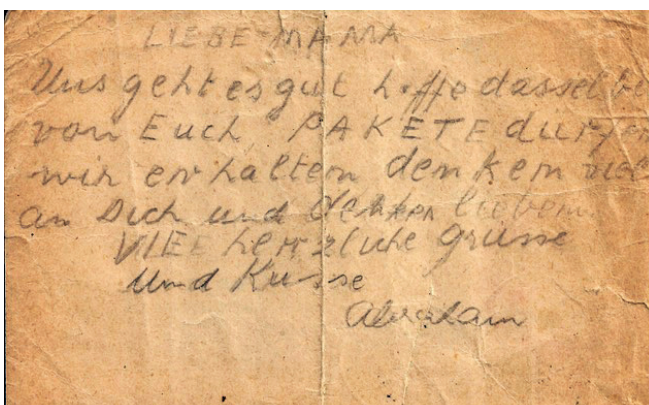 LIEBE MAMA
Uns geht es gut hoffe dasselbe
von Euch, PAKETE dürfen
wir erhalten denken viel
an Dich und lieben
VIEL herzliche Grüsse
und Küsse
Abraham